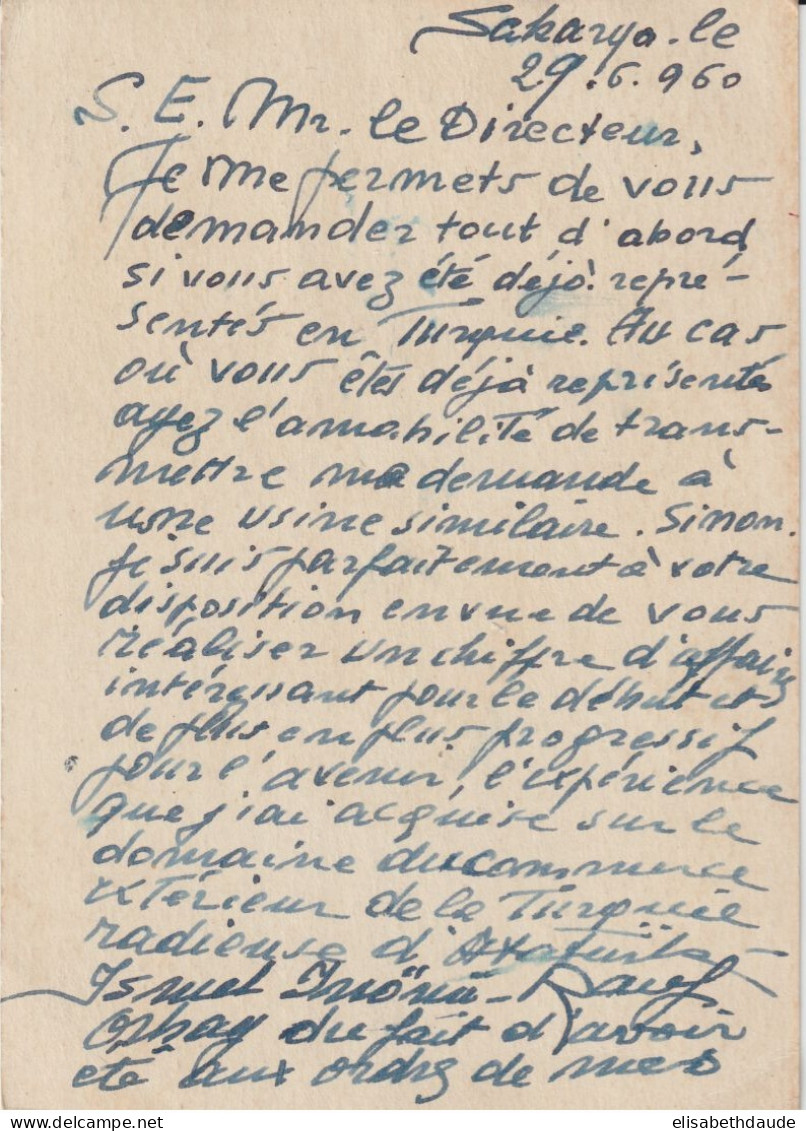 Sakarya. le
29.6.960
S. E. Mr. le Directeur,
Je me permets de vous
demander tout d'abord
si vous avez été déjà repré-
sentés en Turquie. Au cas
où vous êtes déjà représentés
ayez l'amabilité de trans-
mettre ma demande à
une usine similaire. Sinon.
je suis parfaitement à votre
disposition en vue de vous
réaliser un chiffre d'affaire
intéressant pour le début et
de plus en plus progressif
pour l'avenir, l'expérience
que j'ai acquise sur le
domaine du commerce
extérieur de la Turquie
radieuse d'Atatürk-
Ismet Inönü - Rauf
Orbay du fait d'avoir
été aux ordres de mes
elisabethdaude